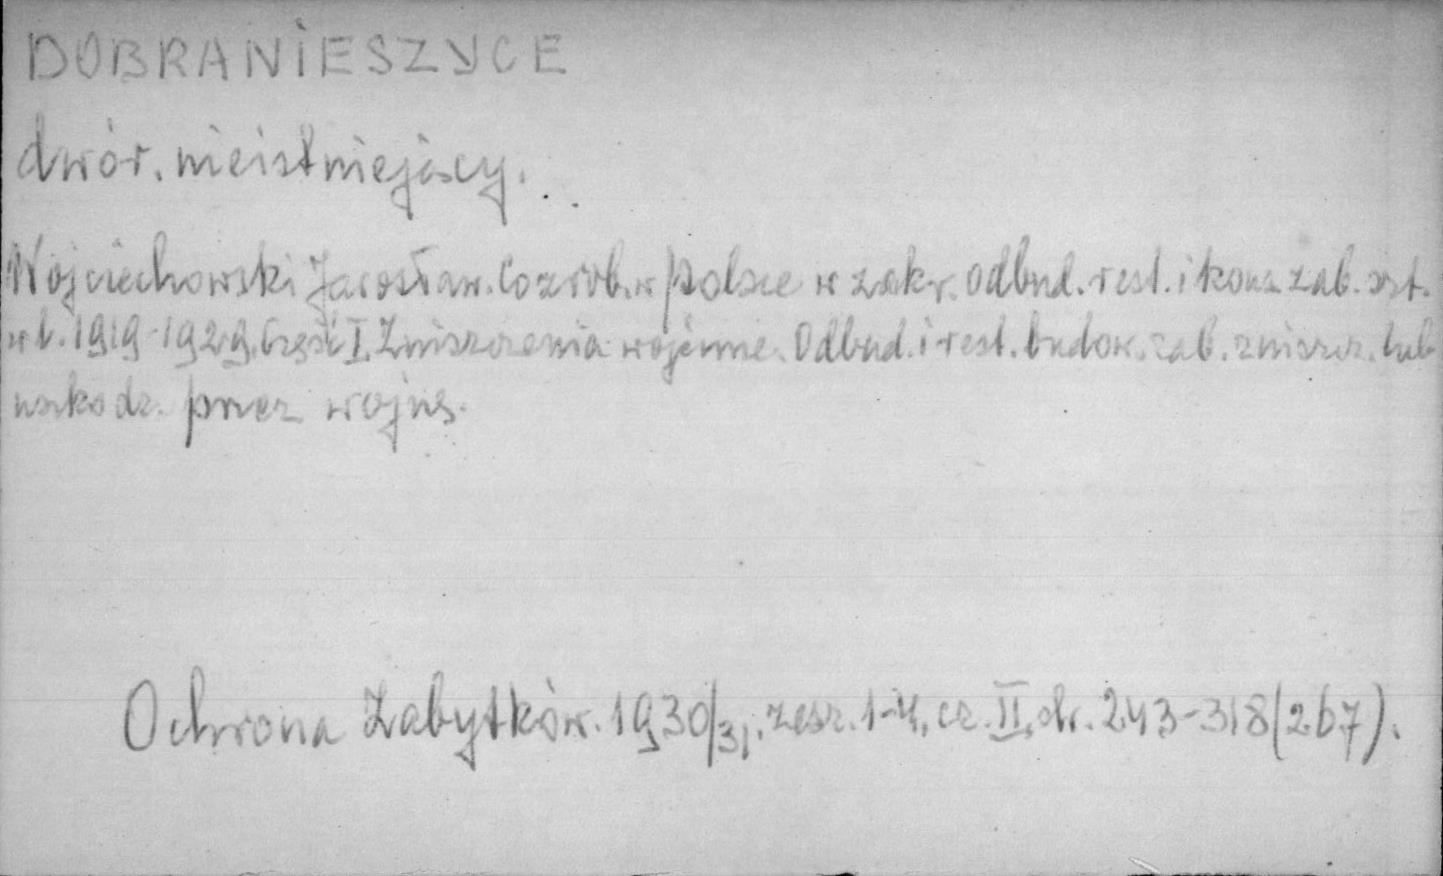 DOBRANIESZYCE
dwór. nieistniejący.
Wojciechowski Jarosław. Co zrob. w Polsce w zakr. odbud. rest. i kons. zab. szt.
w l. 1919-1929. Część I. Zniszczenia wojenne. Odbud. i rest. budow. zab. zniszcz. lub
uszkodz. przez wojnę.
Ochrona Zabytków. 1930/31, zesz. 1-4, cz. II, str. 243-318 (267).